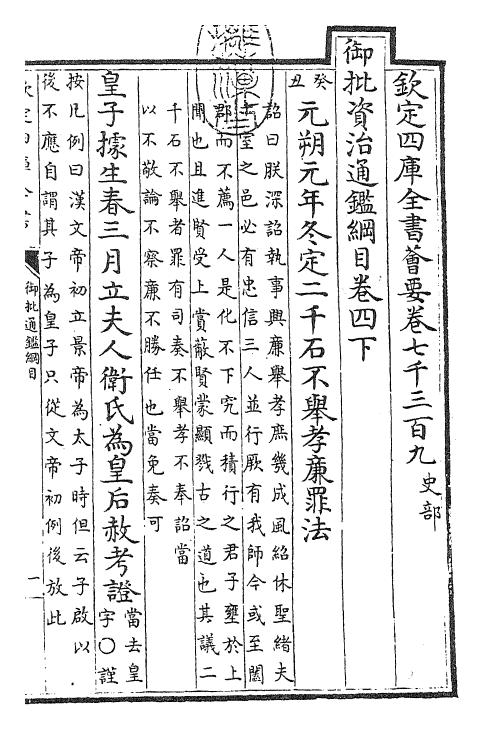 欽定四庫全書薈要卷七千三百九 史部
御批資治通鑑綱目卷四下
癸丑 元朔元年冬定二千石不舉孝廉罪法
詔曰朕深詔執事興廉舉孝庶幾成風紹休聖緒夫
十室之邑必有忠信三人並行厥有我師今或至闔
郡而不薦一人是化不下究而積行之君子壅於上
聞也且進賢受上賞蔽賢蒙顯戮古之道也其議二
千石不舉者罪有司奏不舉孝不奉詔當
以不敬論不察廉不勝任也當免奏可
皇子據生春三月立夫人衛氏為皇后赦考證 當去皇
字〇謹
按凡例曰漢文帝初立景帝為太子時但云子啟以
後不應自謂其子為皇子只從文帝初例後放此
御批通鑑綱目
一